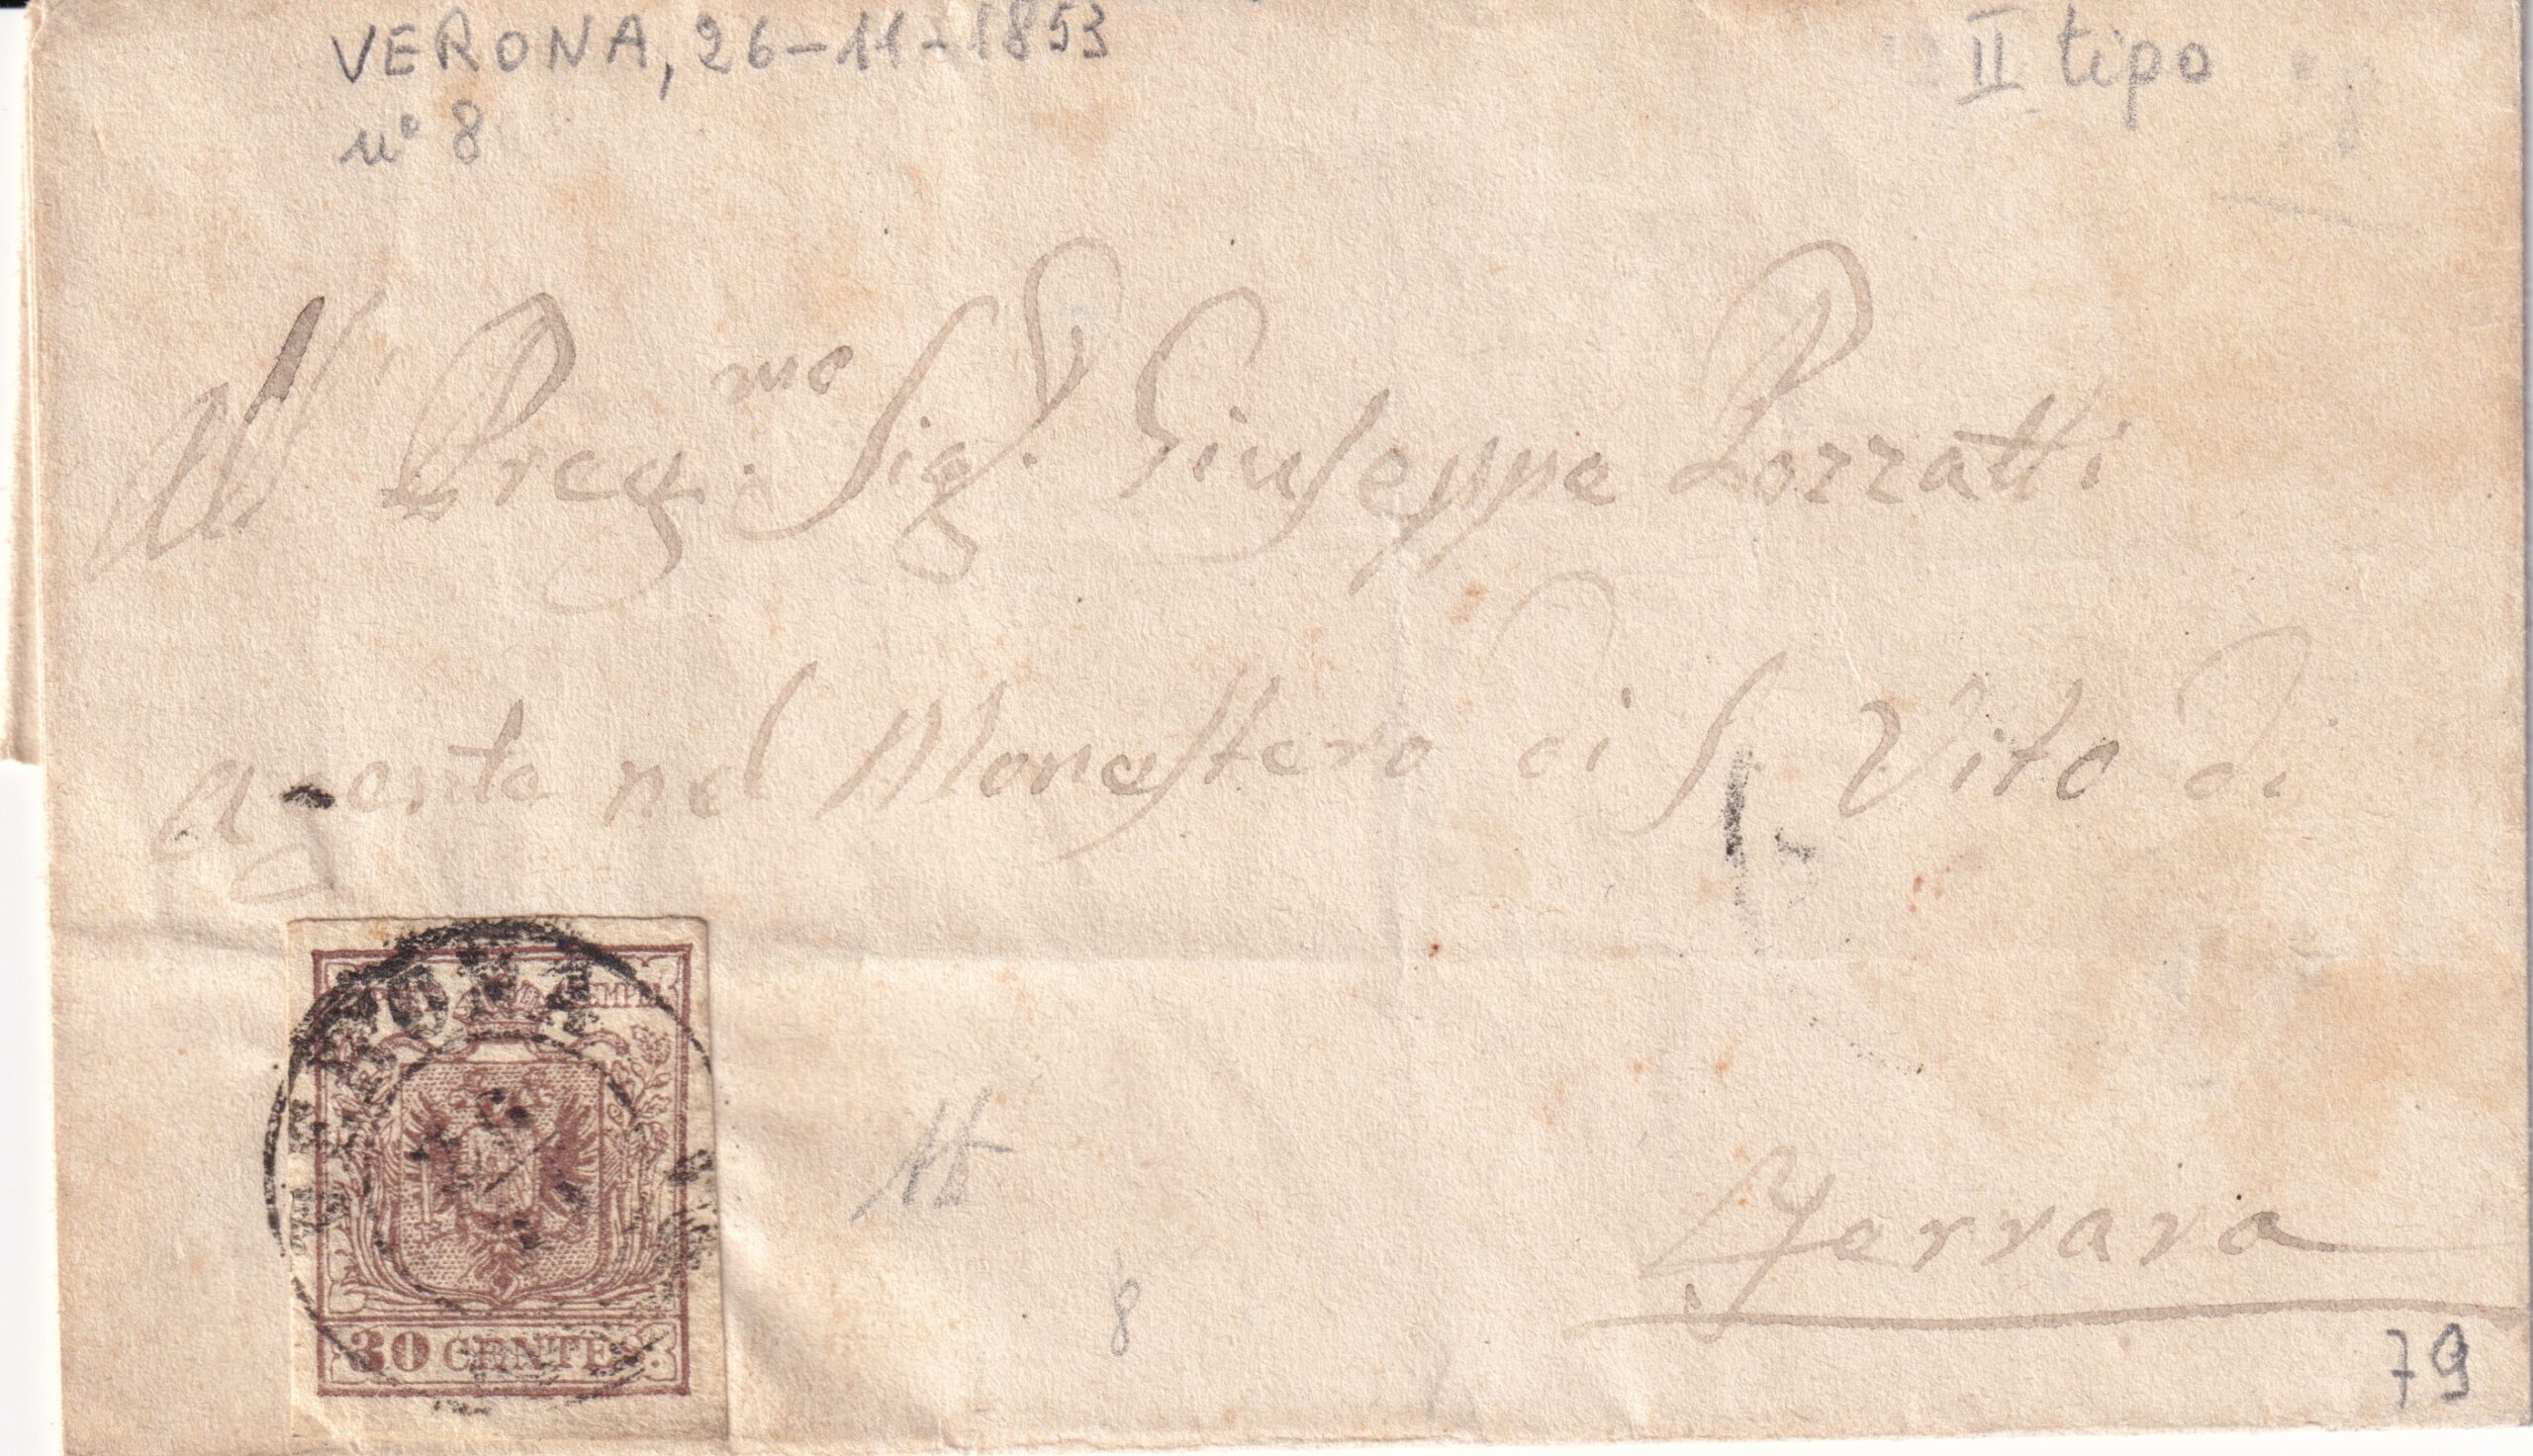 VERONA, 26-11-1853
II tipo
n° 8
Al Preg.mo Sigr. Giuseppe Pozzatti
agente nel Monastero di S. Vito di
Ferrara
8
79
30 CENTES.